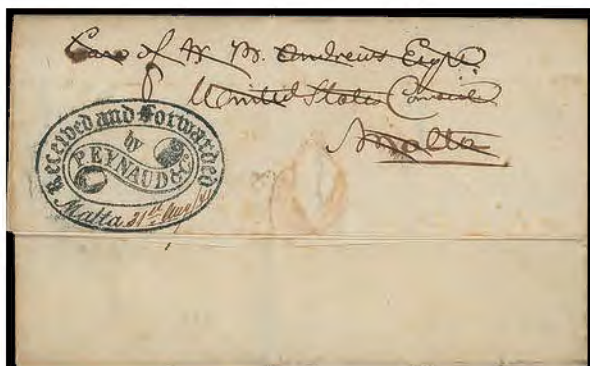 Care of W. W. Andrews Esqre
United States Consul
Malta
Received and Forwarded
by
PEYNAUD & Co
Malta 31th Aug/41